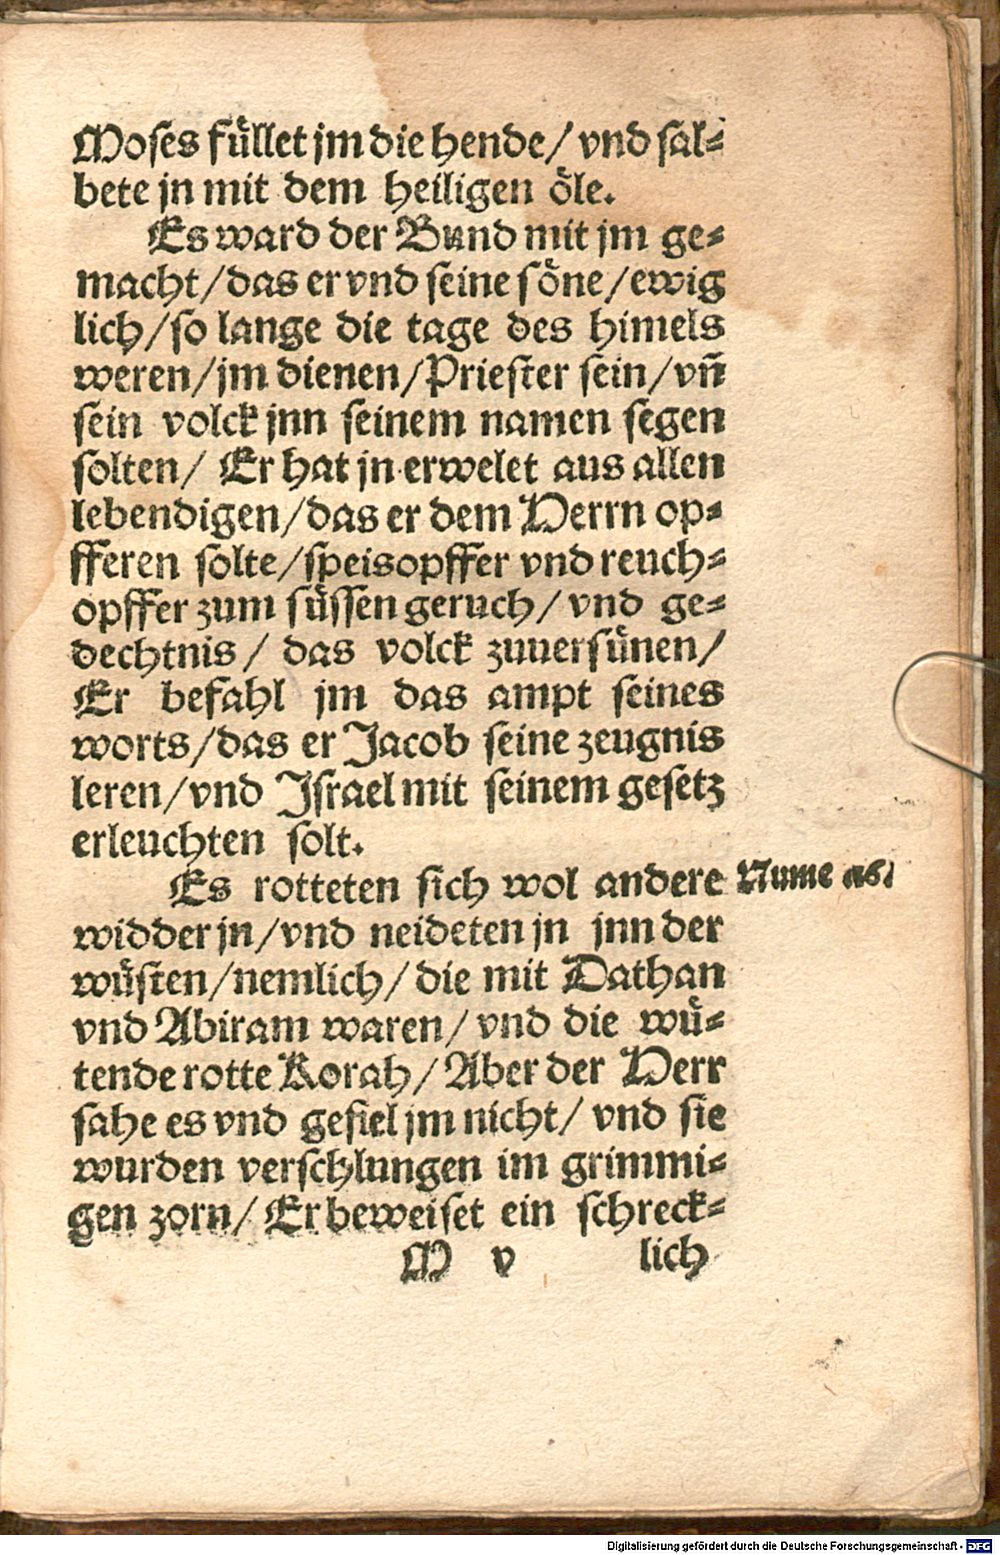 Moses füllet jm die hende/ vnd sal⸗
bete jn mit dem heiligen öle.
Es ward der Bund mit jm ge⸗
macht/das er vnd seine söne/ewig
lich/so lange die tage des himels
weren/jm dienen/Priester sein/vñ
sein volck jnn seinem namen segen
solten/ Er hat jn erwelet aus allen
lebendigen/das er dem Herrn op⸗
fferen solte/speisopffer vnd reuch⸗
opffer zum süssen geruch/ vnd ge⸗
dechtnis/ das volck zuuersünen/
Er befahl jm das ampt seines
worts/das er Jacob seine zeugnis
leren/vnd Israel mit seinem gesetz
erleuchten solt.
Es rotteten sich wol andere
Nume
widder jn/vnd neideten jn jnn der
wüsten/nemlich/ die mit Dathan
vnd Abiram waren/ vnd die wü⸗
tende rotte Korah/ Aber der Herr
sahe es vnd gefiel jm nicht/ vnd sie
wurden verschlungen im grimmi⸗
gen zorn/ Er beweiset ein schreck⸗
M v lich
Digitalisierung gefördert durch die Deutsche Forschungsgemeinschaft - DFG